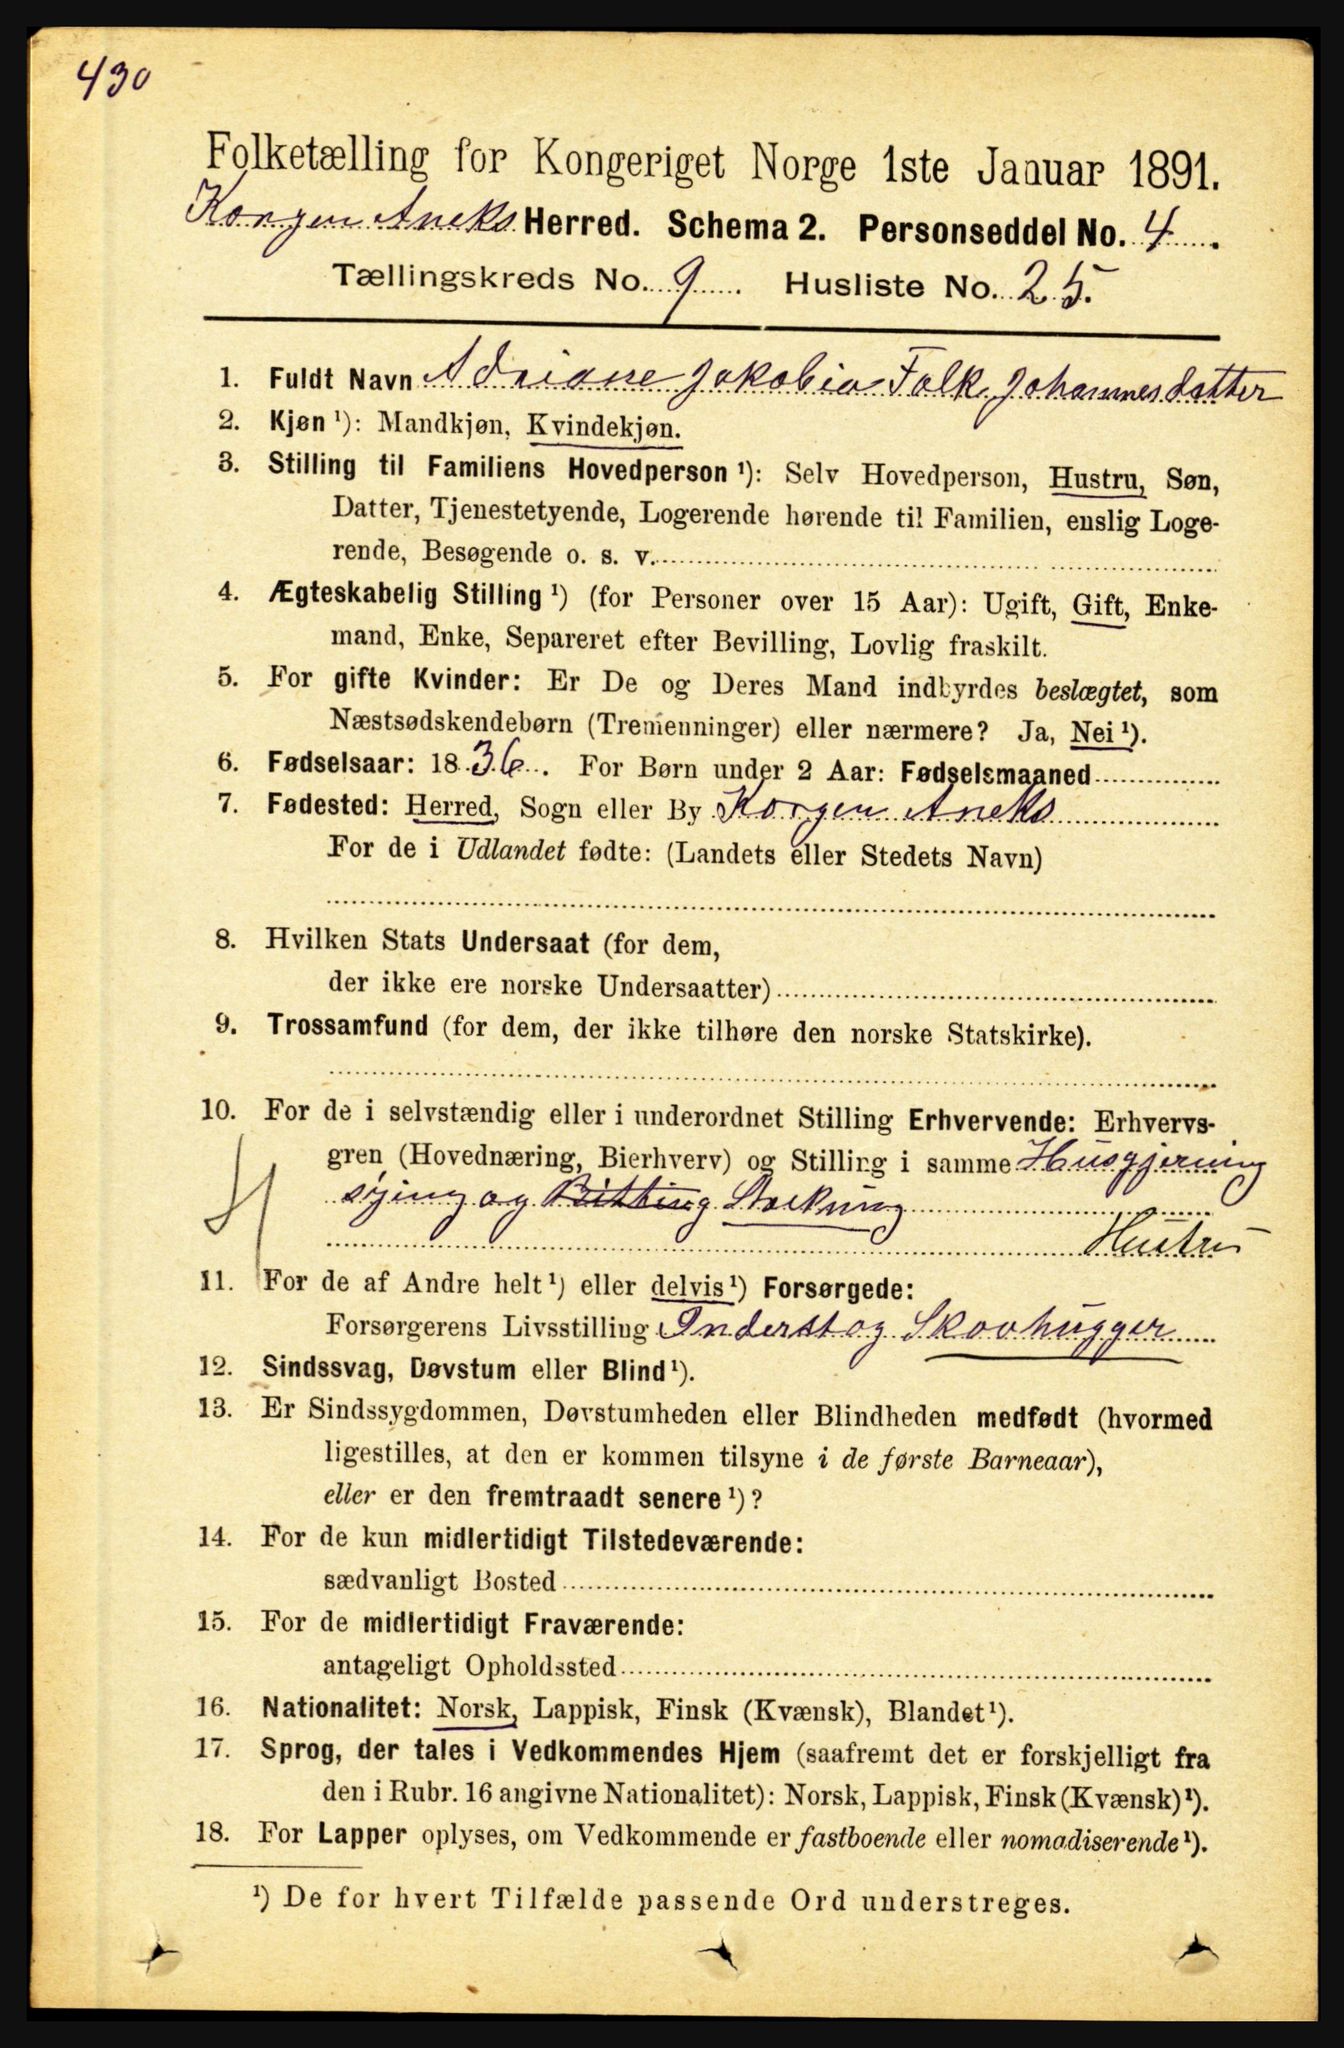 430
Folketælling for Kongeriget Norge 1ste Januar 1891.
Korgen Aneks Herred. Schema 2. Personseddel No. 4.
Tællingskreds No. 9. Husliste No. 25.
1. Fuldt Navn Adriane Jakobia Falk Johannesdatter
2. Kjøn ¹): Mandkjøn, Kvindekjøn.
3. Stilling til Familiens Hovedperson ¹): Selv Hovedperson, Hustru, Søn,
Datter, Tjenestetyende, Logerende hørende til Familien, enslig Loge-
rende, Besøgende o. s. v.
4. Ægteskabelig Stilling ¹) (for Personer over 15 Aar): Ugift, Gift, Enke-
mand, Enke, Separeret efter Bevilling, Lovlig fraskilt.
5. For gifte Kvinder: Er De og Deres Mand indbyrdes beslægtet, som
Næstsødskendebørn (Tremenninger) eller nærmere? Ja, Nei ¹).
6. Fødselsaar: 1836. For Børn under 2 Aar: Fødselsmaaned
7. Fødested: Herred, Sogn eller By Korgen Aneks
For de i Udlandet fødte: (Landets eller Stedets Navn)
8. Hvilken Stats Undersaat (for dem,
der ikke ere norske Undersaatter)
9. Trossamfund (for dem, der ikke tilhøre den norske Statskirke).
10. For de i selvstændig eller i underordnet Stilling Erhvervende: Erhvervs-
gren (Hovednæring, Bierhverv) og Stilling i samme Husgjerning
sying og Bitting Strekning
Hustru
11. For de af Andre helt ¹) eller delvis ¹) Forsørgede:
Forsørgerens Livsstilling Inderst og Skovhugger
12. Sindssvag, Døvstum eller Blind ¹).
13. Er Sindssygdommen, Døvstumheden eller Blindheden medfødt (hvormed
ligestilles, at den er kommen tilsyne i de første Barneaar),
eller er den fremtraadt senere ¹)?
14. For de kun midlertidigt Tilstedeværende:
sædvanligt Bosted
15. For de midlertidigt Fraværende:
antageligt Opholdssted
16. Nationalitet: Norsk, Lappisk, Finsk (Kvænsk), Blandet ¹).
17. Sprog, der tales i Vedkommendes Hjem (saafremt det er forskjelligt fra
den i Rubr. 16 angivne Nationalitet): Norsk, Lappisk, Finsk (Kvænsk) ¹).
18. For Lapper oplyses, om Vedkommende er fastboende eller nomadiserende ¹).
¹) De for hvert Tilfælde passende Ord understreges.